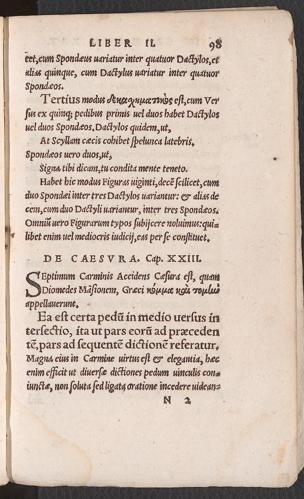 LIBER II. 98
eet, cum Spondæus uariatur inter quatuor Dactylos, et
alias quinque, cum Dactylus uariatur inter quatuor
Spondæos.
Tertius modus δεκασχηματικὸς est, cum Ver
sus ex quinq; pedibus primis uel duos habet Dactylos
uel duos Spondæos. Dactylos quidem, ut,
At Scyllam cæcis cohibet spelunca latebris,
Spondæos uero duos, ut,
Signa tibi dicam, tu condita mente teneto.
Habet hic modus Figuras uiginti, decē scilicet, cum
duo Spondæi inter tres Dactylos uariantur: & alias de
cem, cum duo Dactyli uariantur, inter tres Spondæos.
Omniū uero Figurarum typos subijcere noluimus: qui
libet enim uel mediocris iudicij, eas per se constituet.
DE CAESVRA. Cap. XXIII.
SEptimum Carminis Accidens Cæsura est, quam
Diomedes Māsionem, Græci κόμμα καὶ τομὴν
appellauerunt.
Ea est certa pedū in medio uersus in
tersectio, ita ut pars eorū ad præceden
tē, pars ad sequentē dictionē referatur.
Magna eius in Carmine uirtus est & elegantia, hæc
enim efficit ut diuersæ dictiones pedum uinculis con-
iunctæ, non soluta sed ligata oratione incedere uidean-
N 2